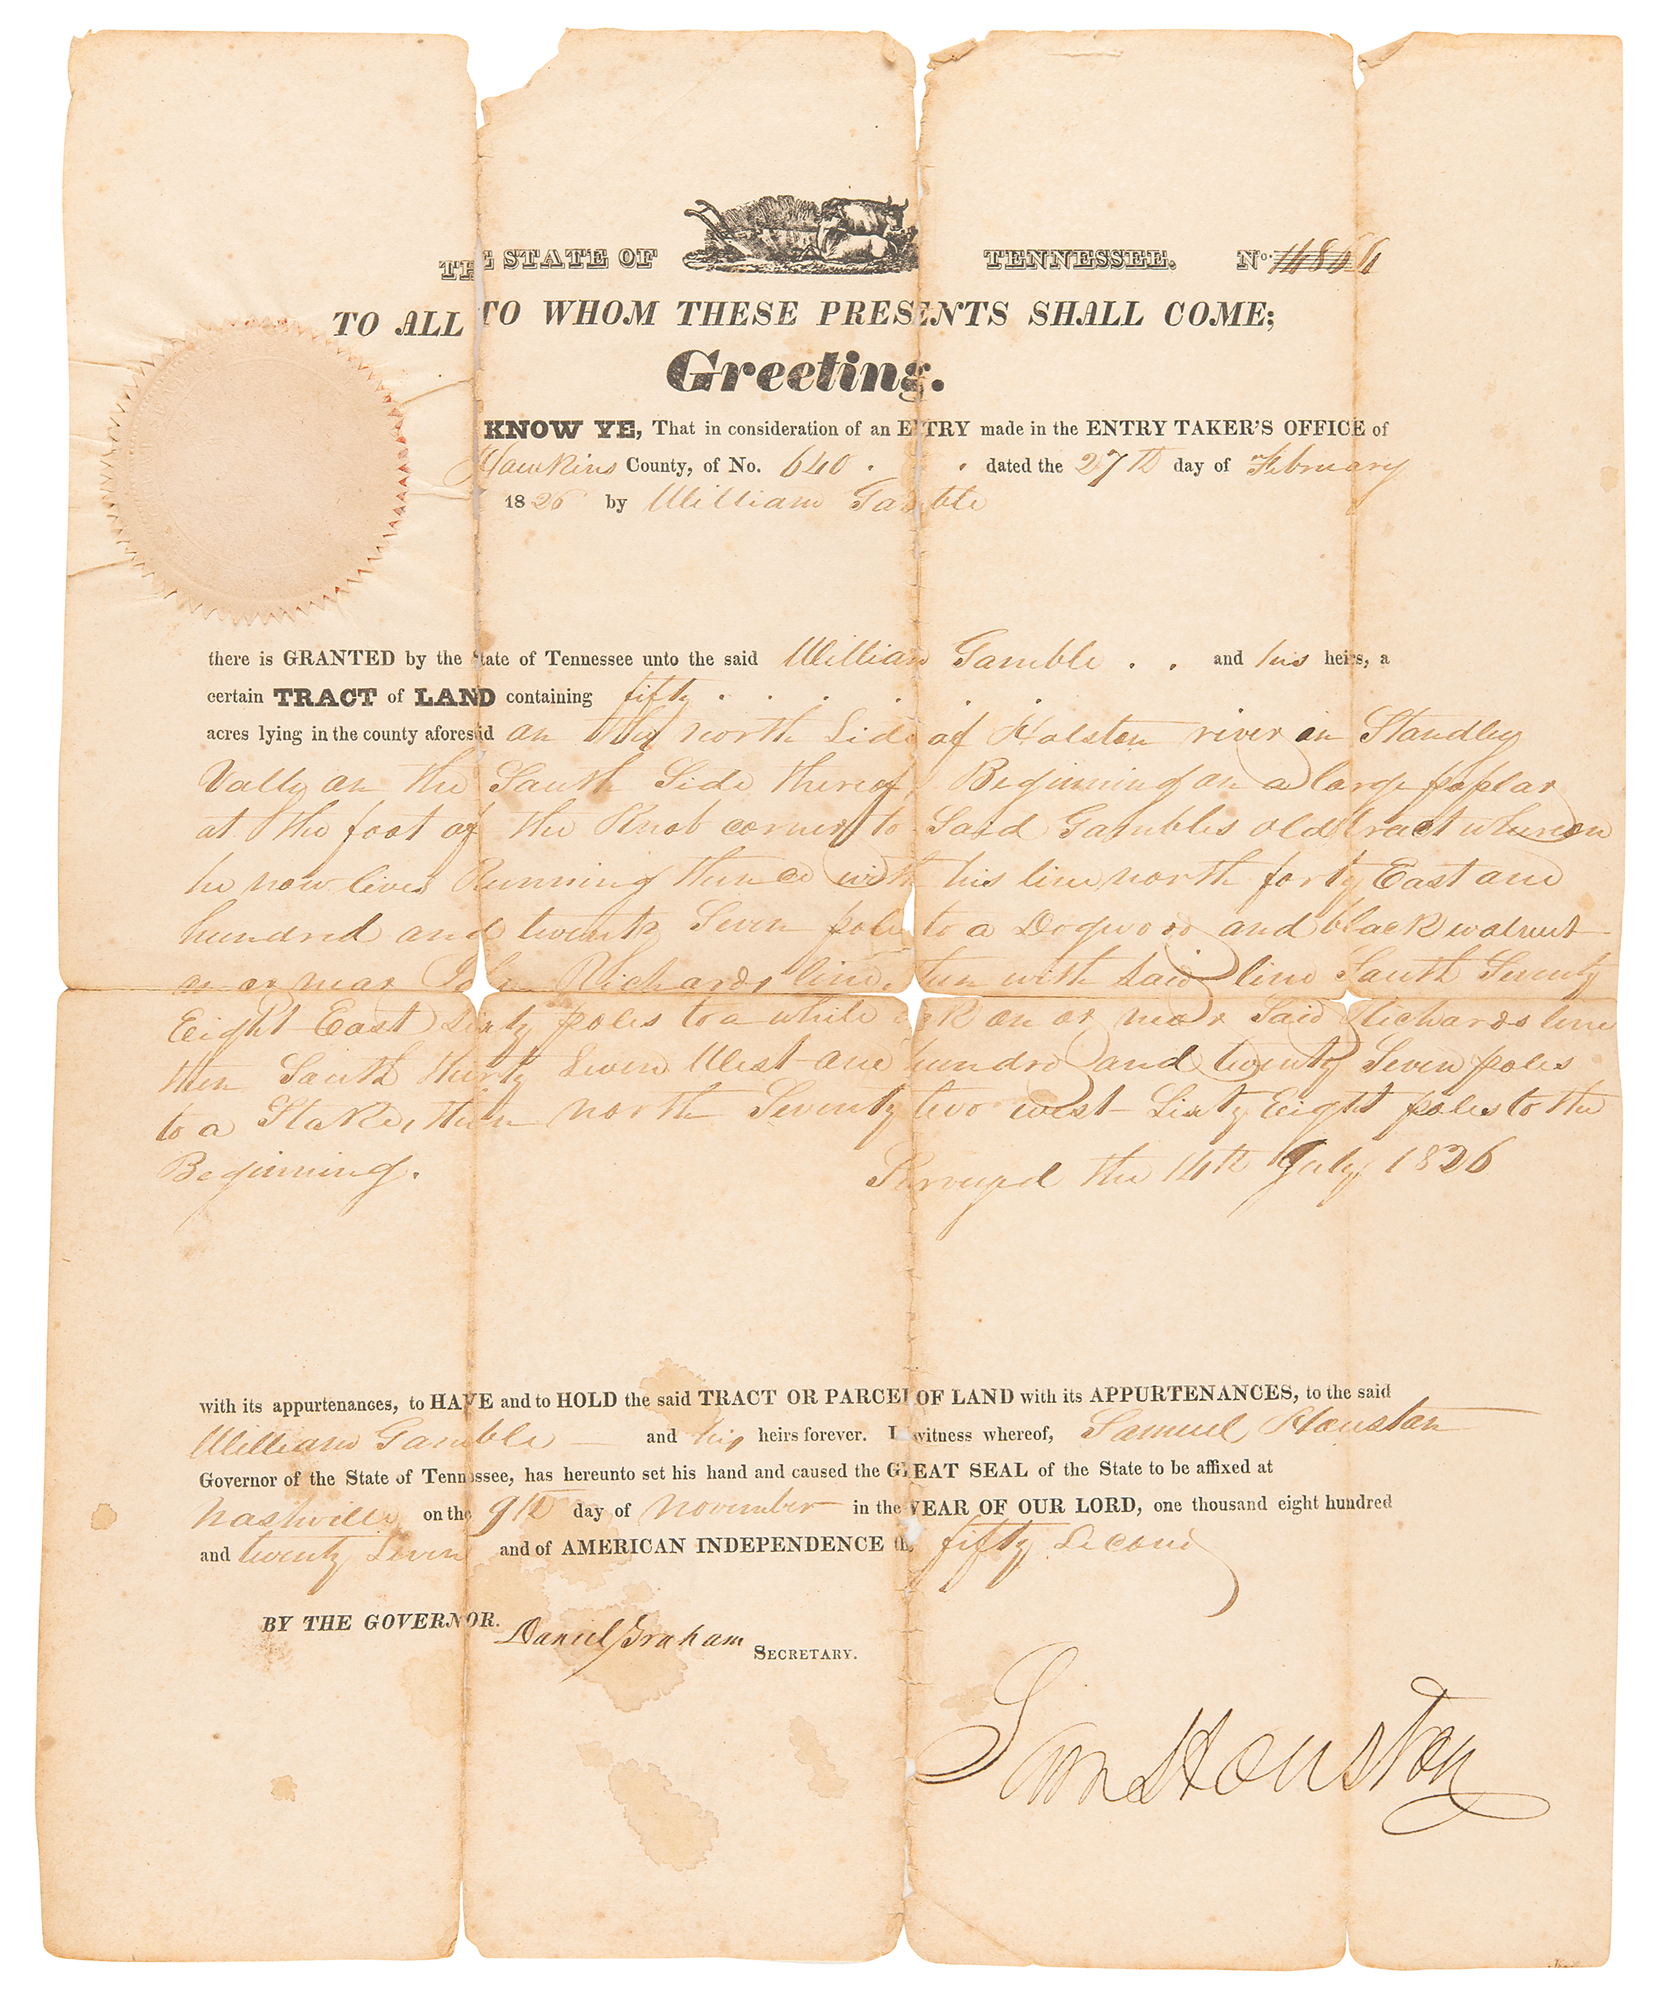 THE STATE OF TENNESSEE. No. 14866
TO ALL TO WHOM THESE PRESENTS SHALL COME;
Greeting.
KNOW YE, That in consideration of an ENTRY made in the ENTRY TAKER'S OFFICE of
Hawkins County, of No. 640 . . dated the 27th day of February
1826 by William Gamble
there is GRANTED by the State of Tennessee unto the said William Gamble . . and his heirs, a
certain TRACT of LAND containing fifty . . . . . .
acres lying in the county aforesaid on the north Side of Holston river in Standley
Vally on the South Side thereof, Beginning on a large poplar
at the foot of the Knob corner to Said Gambles old tract whereon
he now lives Running thence with his line north forty East one
hundred and twenty Seven poles to a Dogwood and black walnut
on or near John Richards line, then with said line South Seventy
Eight East Sixty poles to a white oak on or near Said Richards line
then South thirty Seven West one hundred and twenty Seven poles
to a Stake, then north Seventy two west Sixty Eight poles to the
Beginning. Surveyed the 14th July 1826
with its appurtenances, to HAVE and to HOLD the said TRACT OR PARCEL OF LAND with its APPURTENANCES, to the said
William Gamble and his heirs forever. In witness whereof, Samuel Houston
Governor of the State of Tennessee, has hereunto set his hand and caused the GREAT SEAL of the State to be affixed at
Nashville on the 9th day of November in the YEAR OF OUR LORD, one thousand eight hundred
and twenty Seven and of AMERICAN INDEPENDENCE the fifty Second
BY THE GOVERNOR.
Daniel Graham SECRETARY.
Sam Houston